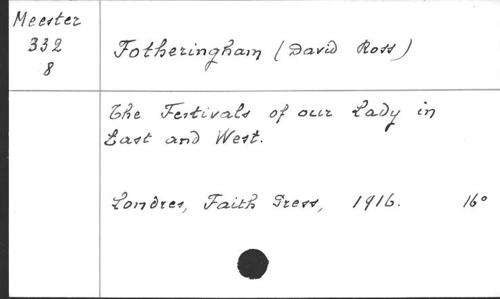 Meester
332
8
Fotheringham (David Ross)
The Festivals of our Lady in
East and West.
Londres, Faith Press, 1916. 16°